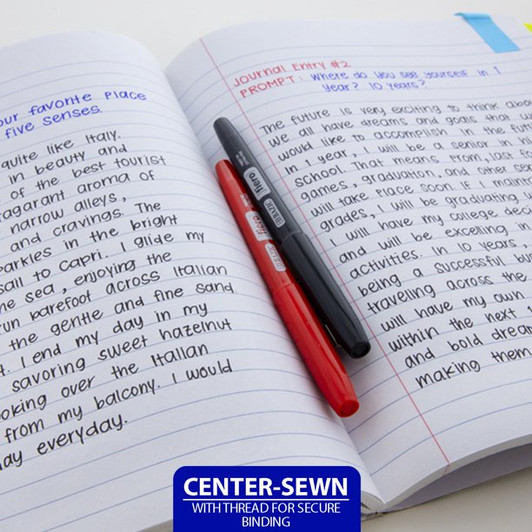 our favorite Place
five senses.
quite like Italy.
in beauty and
of the best tourist
fragarant aroma of
narrow alleys,
and cravings. The
parkles in the bright
sail to Capri. I glide my
he sea, enjoying the
run barefoot across Italian
the gentle and fine sand
t. I end my day in my
savoring sweet hazelnut
ooking over the Italian
from my balcony. I would
day everyday.
Journal Entry #2
PROMPT: Where do you see yourself in 1
Year? 10 years?
The future is very exciting to think abo
we all have dreams and goals that w
would like to accomplish in the futu
In 1 year, I will be a senior in hi
school. That means Prom, last
games, graduation, and other se
will take place soon. If I maint
grades, I will be graduating
I will have my college deci
and will be excelling
activities. In 10 years
being a successful bus
traveling across the
will have my own
within the next
and bold drea
making them
flero
flero
CENTER-SEWN
WITH THREAD FOR SECURE
BINDING